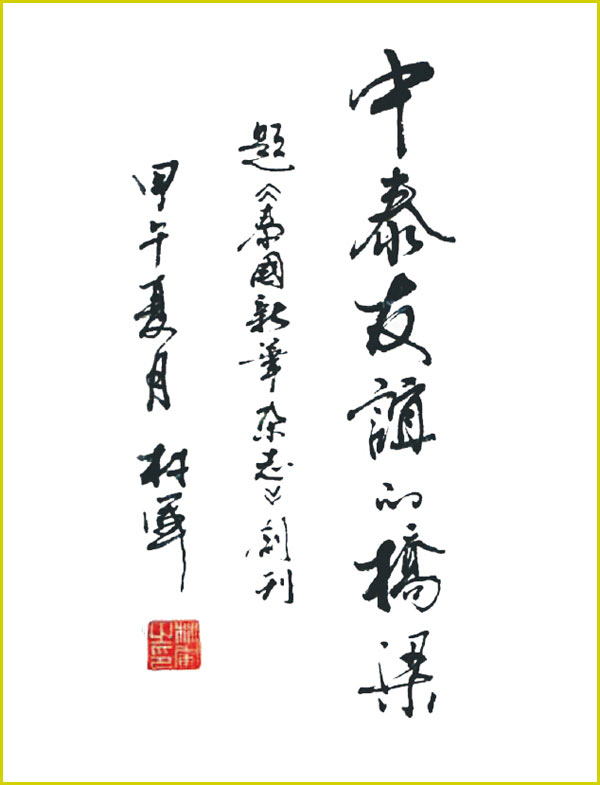 中泰友誼的橋梁
題《泰國新華杂志》創刊
甲午夏月 林軍
林軍之印